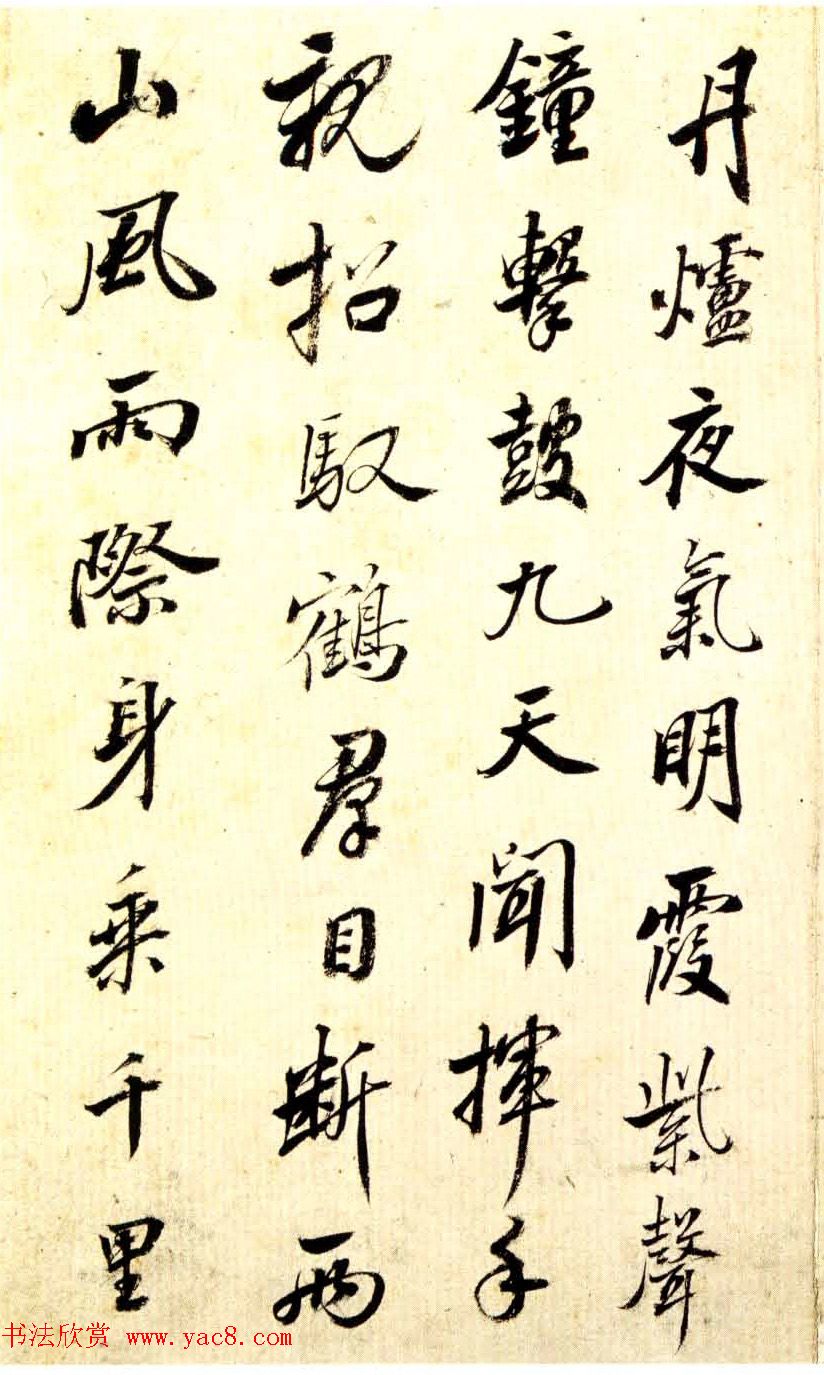 丹爐夜氣明霞紫聲
鐘擊鼓九天聞揮手
親招馭鶴羣目斷兩
山風雨際身乘千里
书法欣赏 www.yac8.com